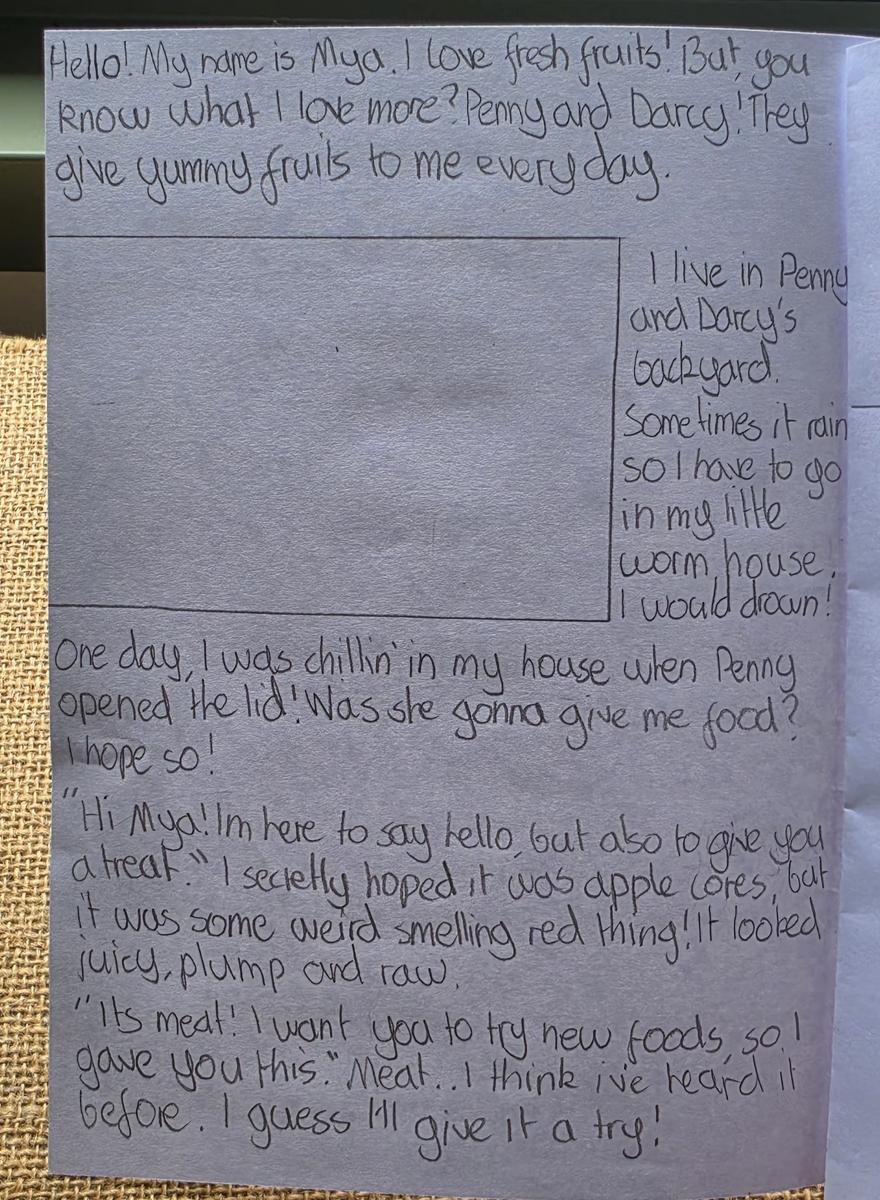 Hello! My name is Mya. I love fresh fruits! But, you
know what I love more? Penny and Darcy! They
give yummy fruits to me every day.
I live in Penny
and Darcy's
backyard.
Sometimes it rain
so I have to go
in my little
worm house.
I would drown!
One day, I was chillin' in my house when Penny
opened the lid! Was she gonna give me food?
I hope so!
"Hi Mya! Im here to say hello, but also to give you
a treat." I secretly hoped it was apple cores, but
it was some weird smelling red thing! It looked
juicy, plump and raw.
"Its meat! I want you to try new foods, so I
gave you this." Meat... I think i've heard it
before. I guess I'll give it a try!